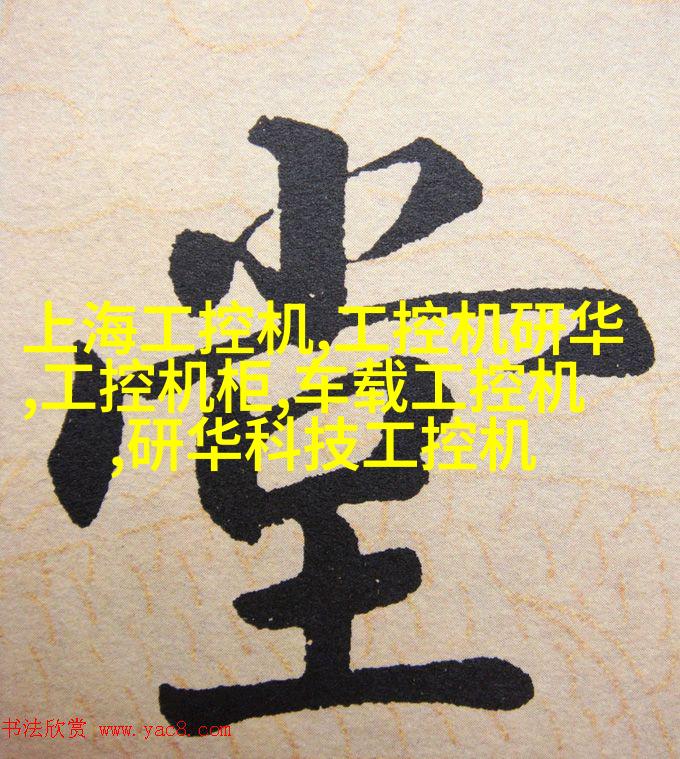 堂
上海工控机,工控机研华
,工控机柜,车载工控机
,研华科技工控机
书法欣赏 www.yac8.com